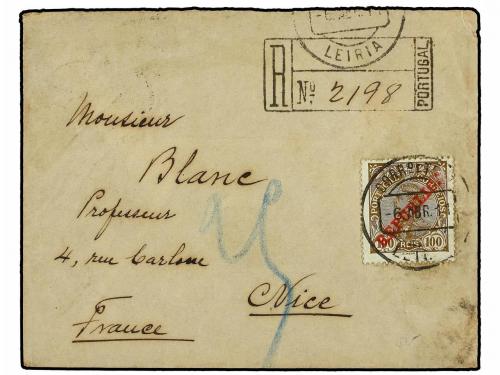 LEIRIA
R
Nº 2198
PORTUGAL
Monsieur
Blanc
Professeur
4, rue Carlone
Nice
France
REPUBLICA
100 REIS 100
-6 ABR.